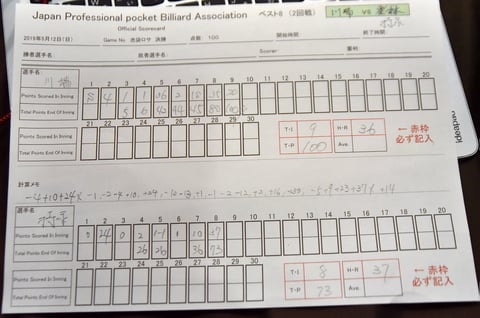 Japan Professional pocket Billiard Association ベスト8 (2回戦)
川端 vs 栗林
Official Scorecard
2019年5月12日(日) Game No 池袋ロサ 決勝 点数: 100 開始時間: 終了時間:
勝者選手名: 敗者選手名: Scorer: 審判:
選手名 川端
1 2 3 4 5 6 7 8 9 10 11 12 13 14 15 16 17 18 19 20
Points Scored In Inning 4 1 1 36 2 35 20
Total Points End Of Inning 5 6 44 45 80 100
21 22 23 24 25 26 27 28 29 30
Points Scored In Inning
Total Points End Of Inning
T-I 9 H-R 36
T-P 100 Ave
← 赤枠
必ず記入
計算メモ
選手名
1 2 3 4 5 6 7 8 9 10 11 12 13 14 15 16 17 18 19 20
Points Scored In Inning 0 24 0 2 1-1 10 37
Total Points End Of Inning 26 26 36 73
21 22 23 24 25 26 27 28 29 30
Points Scored In Inning
Total Points End Of Inning
T-I 8 H-R 37
T-P 73 Ave
← 赤枠
必ず記入
ideapad